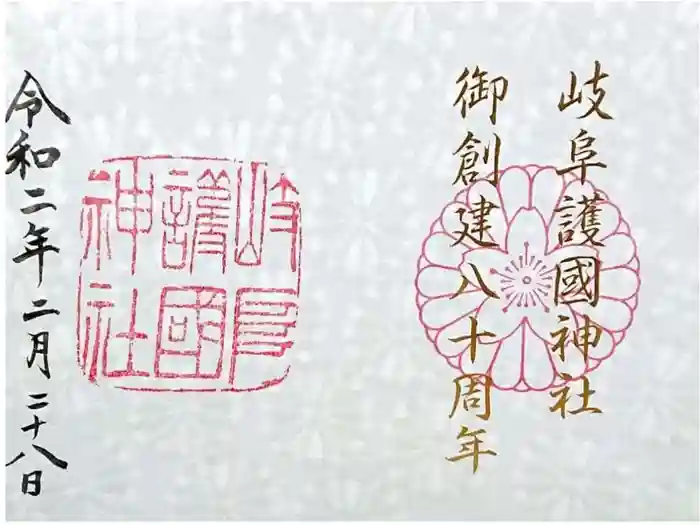 岐阜護國神社
御創建八十周年
岐阜
護國
神社
令和二年二月二十八日